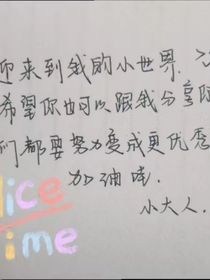 迎来到我的小世界.
希望你也可以跟我分享
们都要努力变成更优秀
加油哇.
小大人.
lice
ime